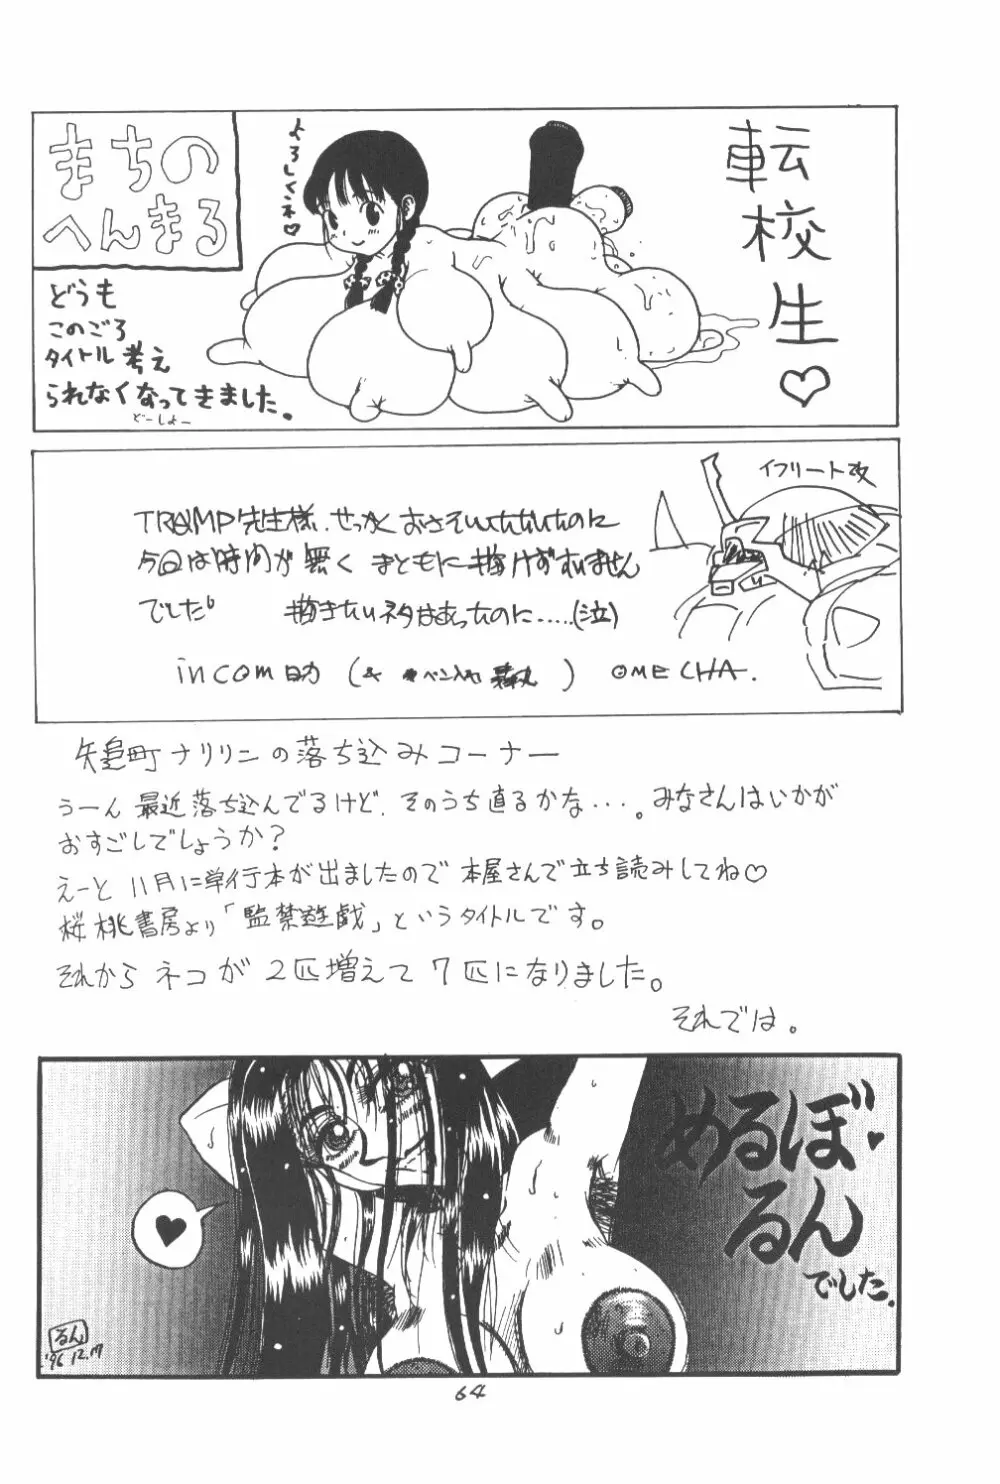 まちの
へんまる
よろしくネ♡
転校生♡
どうも
このごろ
タイトル考え
られなくなってきました。
どーしよー
イフリート改
TRAMP先生様、せっかくおさそいいただいたのに
今回は時間が無く まともに描けずすいません
でした。 描きたいネタはあったのに……(泣)
incom (& ペン入れ ) OMECHA.
矢島町ナリリンの落ち込みコーナー
うーん 最近落ち込んでるけど、そのうち直るかな・・・。みなさんはいかが
おすごしでしょうか?
えーと 11月に単行本が出ましたので 本屋さんで立ち読みしてね♡
桜桃書房より「監禁遊戯」というタイトルです。
それから ネコが 2匹増えて 7匹になりました。
それでは。
♥
めるぼ♥
るん
でした。
るん
'96 12.17
64